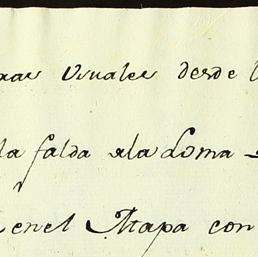 xas Visuales desde l
la falda dla Loma
en el Mapa con